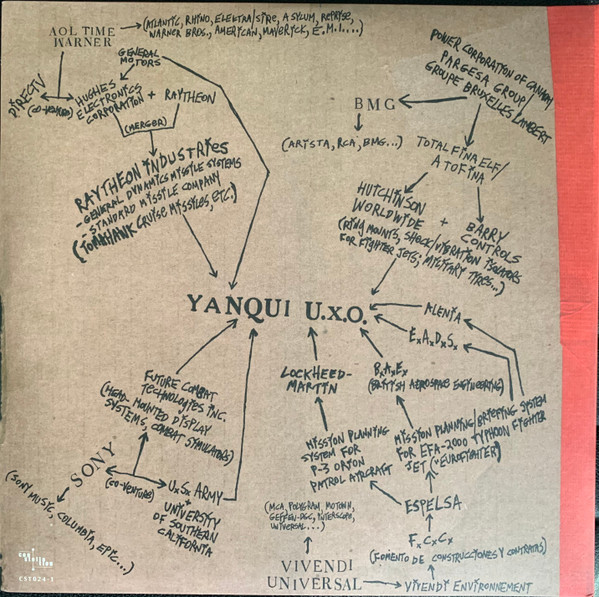 AOL TIME
WARNER
(ATLANTIC, RHINO, ELEKTRA/SIRE, ASYLUM, REPRISE,
WARNER BROS., AMERICAN, MAVERICK, E.M.I....)
GENERAL
MOTORS
DIRECTV
(CO-VENTURE)
HUGHES
ELECTRONICS
CORPORATION + RAYTHEON
(MERGER)
RAYTHEON INDUSTRIES
- GENERAL DYNAMICS MISSILE SYSTEMS
- STANDARD MISSILE COMPANY
(TOMAHAWK CRUISE MISSILES, ETC.)
POWER CORPORATION OF CANADA/
PARGESA GROUP/
GROUPE BRUXELLES LAMBERT
BMG
(ARISTA, RCA, BMG...)
TOTALFINAELF/
ATOFINA
HUTCHINSON
WORLDWIDE + BARRY
CONTROLS
(RING MOUNTS, SHOCK/VIBRATION ISOLATORS
FOR FIGHTER JETS; MILITARY TIRES...)
YANQUI U.X.O.
ALENIA
E.A.D.S.
LOCKHEED-
MARTIN
B.A.E.
(BRITISH AEROSPACE ENGINEERING)
FUTURE COMBAT
TECHNOLOGIES INC.
(HEAD-MOUNTED DISPLAY
SYSTEMS, COMBAT SIMULATORS)
MISSION PLANNING
SYSTEM FOR
P-3 ORION
PATROL AIRCRAFT
MISSION PLANNING/BRIEFING SYSTEM
FOR EFA-2000 TYPHOON FIGHTER
JET ("EUROFIGHTER")
SONY
(CO-VENTURE)
U.S. ARMY
+
UNIVERSITY
OF SOUTHERN
CALIFORNIA
(SONY MUSIC, COLUMBIA, EPIC...)
ESPELSA
F.C.C.
(FOMENTO DE CONSTRUCCIONES Y CONTRATAS)
(MCA, POLYGRAM, MOTOWN,
GEFFEN-DGC, INTERSCOPE,
UNIVERSAL...)
VIVENDI
UNIVERSAL
VIVENDI ENVIRONNEMENT
CST024-1